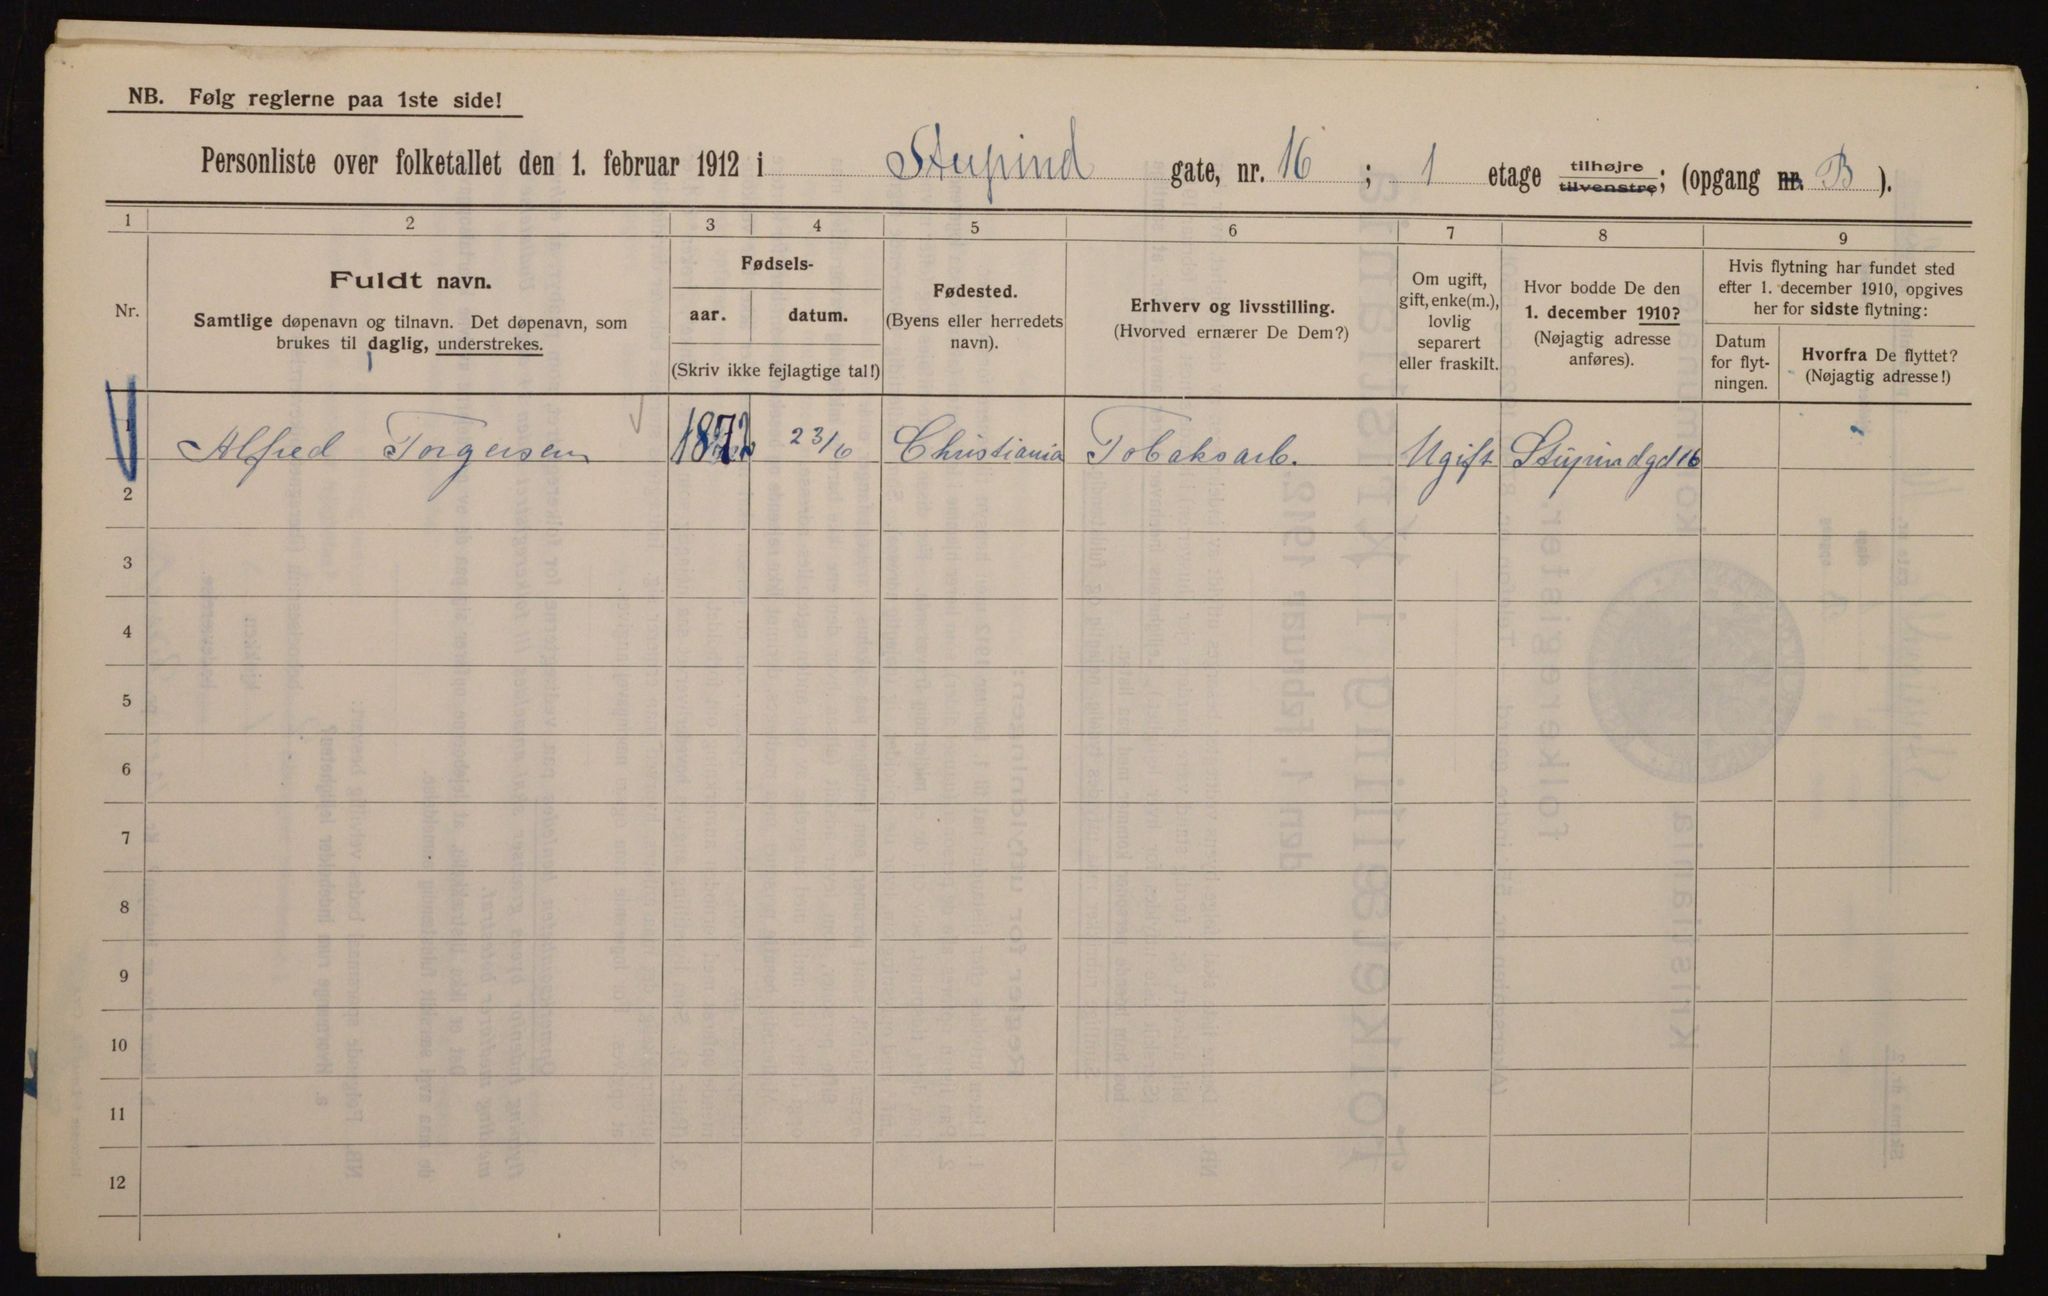 NB. Følg reglerne paa 1ste side!
Personliste over folketallet den 1. februar 1912 i Stupind gate, nr. 16 ; 1 etage tilhøjre tilvenstre; (opgang nr. B ).
1 2 3 4 5 6 7 8 9
Nr.
Fuldt navn.
Samtlige døpenavn og tilnavn. Det døpenavn, som
brukes til daglig, understrekes.
Fødsels-
aar. datum.
(Skriv ikke fejlagtige tal!)
Fødested.
(Byens eller herredets
navn).
Erhverv og livsstilling.
(Hvorved ernærer De Dem?)
Om ugift,
gift, enke(m.),
lovlig
separert
eller fraskilt.
Hvor bodde De den
1. december 1910?
(Nøjagtig adresse
anføres).
Hvis flytning har fundet sted
efter 1. december 1910, opgives
her for sidste flytning:
Datum
for flyt-
ningen.
Hvorfra De flyttet?
(Nøjagtig adresse!)
1 Alfred Torgersen 1872 23/6 Christiania Tobaksarb. Ugift Stupindgd 16
2
3
4
5
6
7
8
9
10
11
12